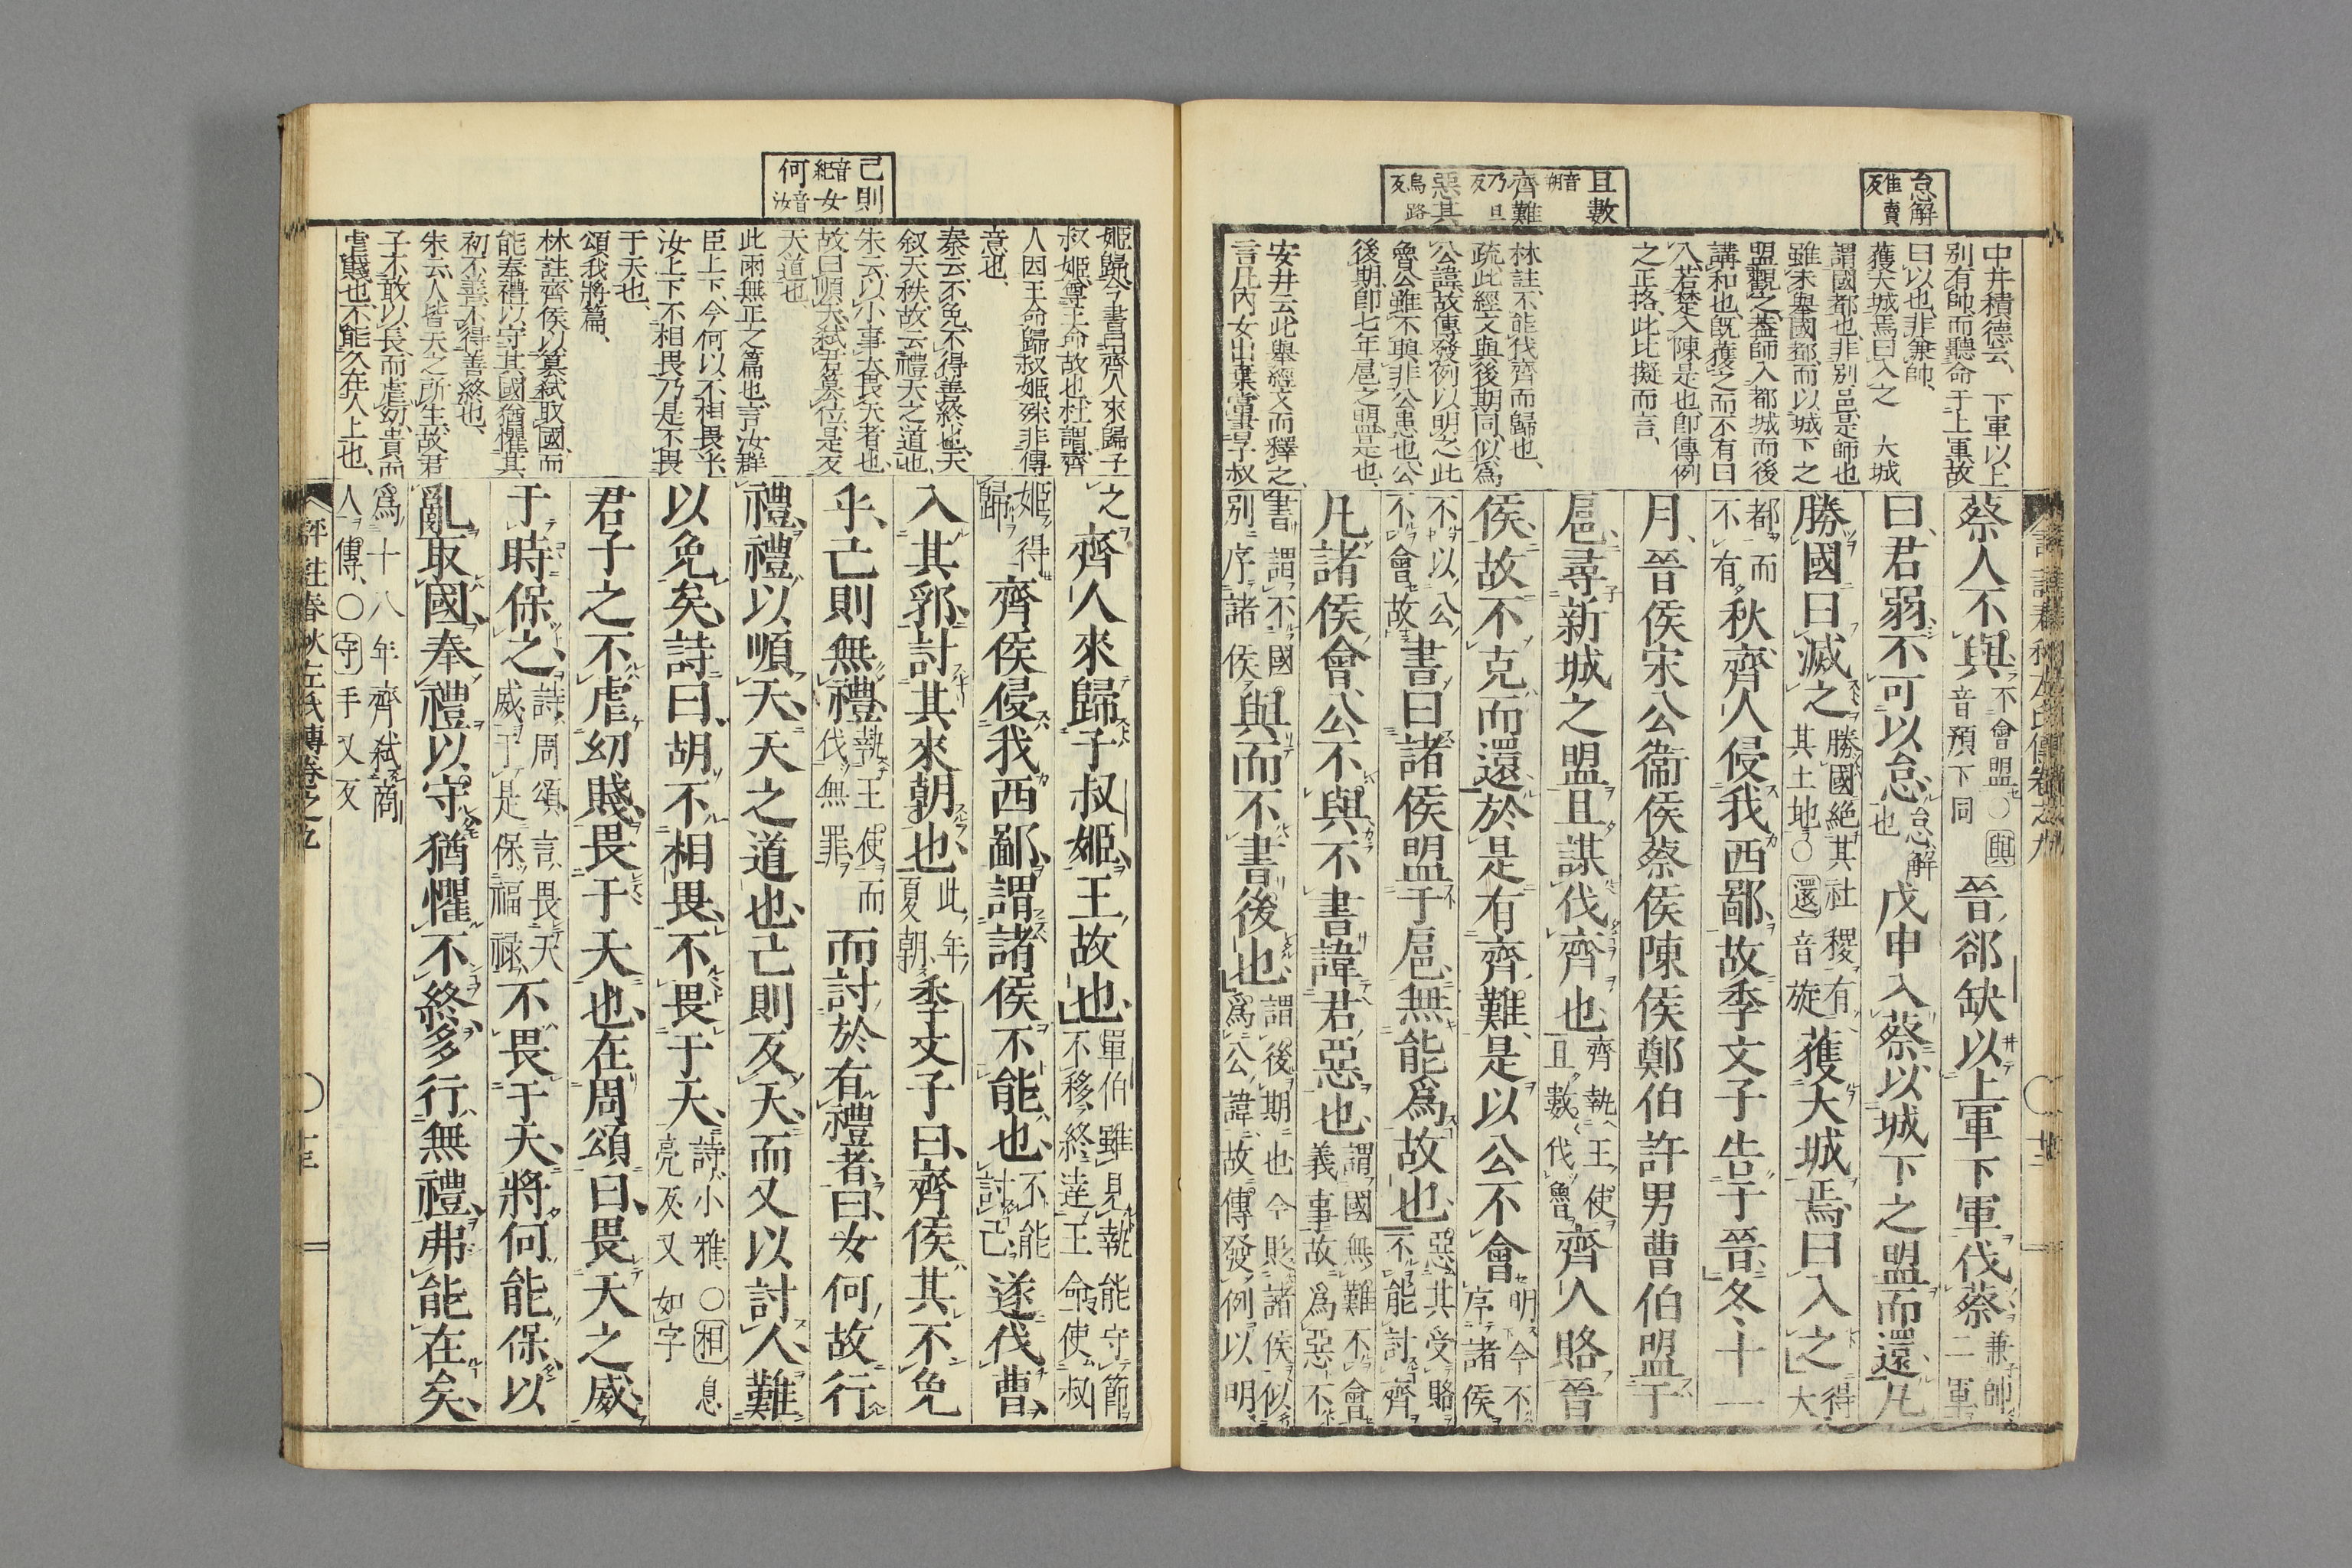 怠解 隹賣反
且數 音朔 齊難 乃旦反 惡其 烏路反
中井積德云、下軍以上
別有帥、而聽命于上軍、故
曰以也、非兼帥、
獲大城焉曰入之　大城
謂國都也、非別邑、是師也
雖未舉國都、而以城下之
盟觀之、蓋師入都城而後
講和也、既獲之而不有曰
入、若楚入陳是也、即傳例
之正挌、此比擬而言、
林註、不能伐齊而歸也、
疏、此經文與後期同、似爲
公諱、故傳發例以明之、此
魯公雖不與、非公患也、公
後期、即七年扈之盟是也、
安井云、此舉經文而釋之、
言凡內女出棄、公當書子叔
蔡人不與 不會盟○與音預下同 晉郤缺以上軍下軍伐蔡 兼帥二軍
曰、君弱、不可以怠、怠解也 戊申入蔡、以城下之盟而還、凡
勝國曰滅之 勝國絕其社稷有其土地○還音旋 獲大城焉曰入之 得大
都而不有 秋、齊人侵我西鄙、故季文子告于晉、冬十一
月、晉侯宋公衞侯蔡侯陳侯鄭伯許男曹伯盟于
扈、尋新城之盟、且謀伐齊也、齊執王使且數伐魯 齊人賂晉
侯、故不克而還、於是有齊難、是以公不會 明今不序諸侯
不以公不會故 書曰諸侯盟于扈、無能爲故也、惡其受賂不能討齊
凡諸侯會、公不與不書、諱君惡也、謂國無難不會義事故爲惡不
書謂不國別序諸侯 與而不書、後也、謂後期也今貶諸侯似爲公諱故傳發例以明
己則 音紀 女何 音汝
姬歸、今書曰齊人來歸子
叔姬、尊王命故也、杜謂齊
人因王命歸叔姬、殊非傳
意也、
秦云、不免、不得善終也、天
叙天秩、故云禮天之道也、
朱云、以小事大、畏天者也、
故曰順天、弑君簒位、是反
天道也、
此雨無正之篇也、言汝群
臣上下、今何以不相畏乎、
汝上下不相畏、乃是不畏
于天也、
頌我將篇、
林註、齊侯以簒弑取國、而
能奉禮以守其國、猶懼其
初不善、不得善終也、
朱云、人皆天之所生、故君
子不敢以長而虐幼、貴而
虐賤也、不能久在人上也、
之 齊人來歸子叔姬、王故也、單伯雖見執能守節不移終達王命使叔
姬得歸 齊侯侵我西鄙、謂諸侯不能也、不能討己 遂伐曹、
入其郛、討其來朝也、此年夏朝 季文子曰、齊侯其不免
乎、己則無禮、執王使而伐無罪 而討於有禮者、曰、女何故行
禮、禮以順天、天之道也、己則反天、而又以討人、難
以免矣、詩曰、胡不相畏、不畏于天、詩小雅○相息亮反又如字
君子之不虐幼賤、畏于天也、在周頌曰、畏天之威、
于時保之、詩周頌言畏天威于是保福祿 不畏于天、將何能保、以
亂取國、奉禮以守、猶懼不終、多行無禮、弗能在矣、
爲十八年齊弑商人傳、○守手又反
評註春秋左氏傳卷之九